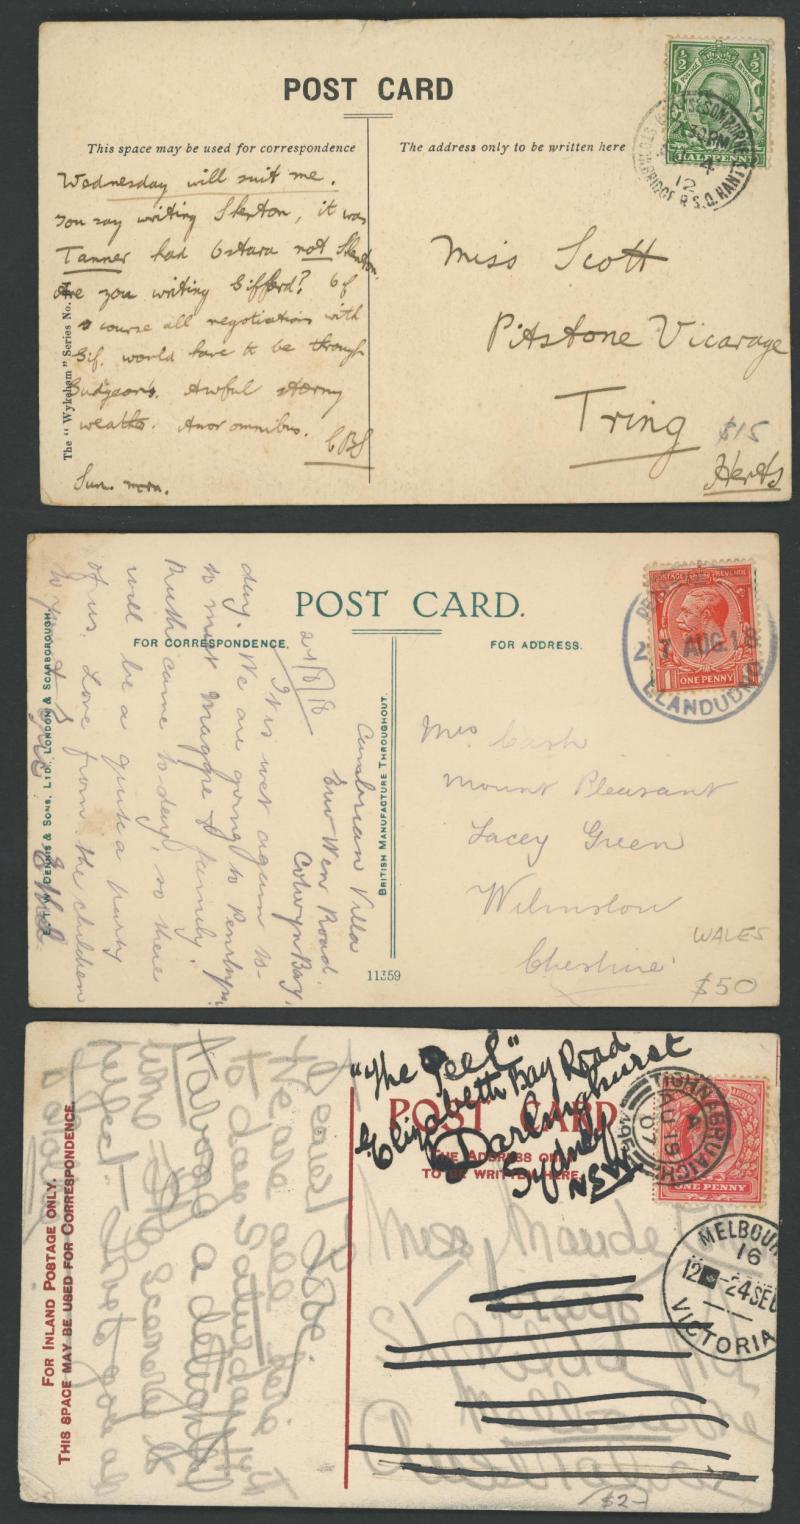 POST CARD
This space may be used for correspondence
The address only to be written here
Wednesday will suit me.
you say writing Skenton, it was
Tanner had Ostara not Skenton.
Are you writing Gifford? Of
course all negotiation with
Gif. would have to be through
Gudgeon's. Awful stormy
weather. Amor omnibus.
CBS
Sun.
The "Wykeham" Series No.
½ ½
HALFPENNY
30PM
4
12
R.S.O. HANTS
Miss Scott
Pitstone Vicarage
Tring
Herts
$15
POST CARD.
FOR CORRESPONDENCE.
FOR ADDRESS.
Cumbrian Villa
Road.
Colwyn Bay.
21/8/18
It is wet again to-
day. We are going to Penrhyn
to meet Maggie & family.
Ruth came to day, so there
will be a quite a party
of us. Love from the children
Ethel.
E.T.W. DENNIS & SONS, LTD., LONDON & SCARBOROUGH.
BRITISH MANUFACTURE THROUGHOUT.
11359
POSTAGE REVENUE
1 ONE PENNY
AUG.18
LLANDUDNO
Mrs Cash
Mount Pleasant
Lacey Green
Wilmslow
Cheshire
WALES
$50
POST CARD
THE ADDRESS ONLY
TO BE WRITTEN HERE
FOR INLAND POSTAGE ONLY.
THIS SPACE MAY BE USED FOR CORRESPONDENCE.
"The Peel"
Elizabeth Bay Road
Darlinghurst
Sydney
NSW
Miss Maude
St Kilda
Melbourne
Australia
Dearest
We are all here
to-day Saturday
a delightful
time. The scenery is
perfect. Love to you all
ONE PENNY
TIGHNABRUAICH
A
AU 18
07
MELBOURNE
16
12 -24 SE
VICTORIA
$2-